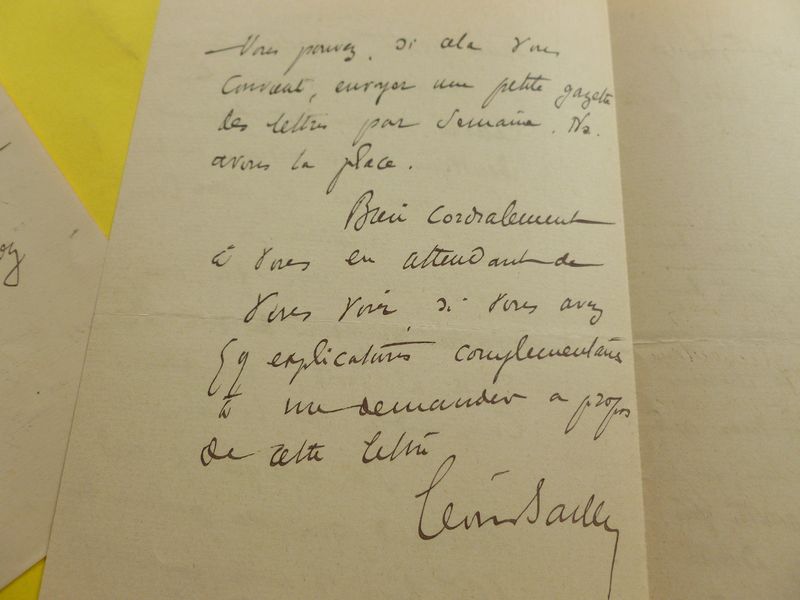 Vous pouvez, si cela vous
convient, envoyer une petite gazette
des lettres par semaine. Ns.
avons la place.
Bien cordialement
à vous en attendant de
vous voir, si vous avez
qq explications complémentaires
à me demander a propos
de cette lettre
Léon Bailby